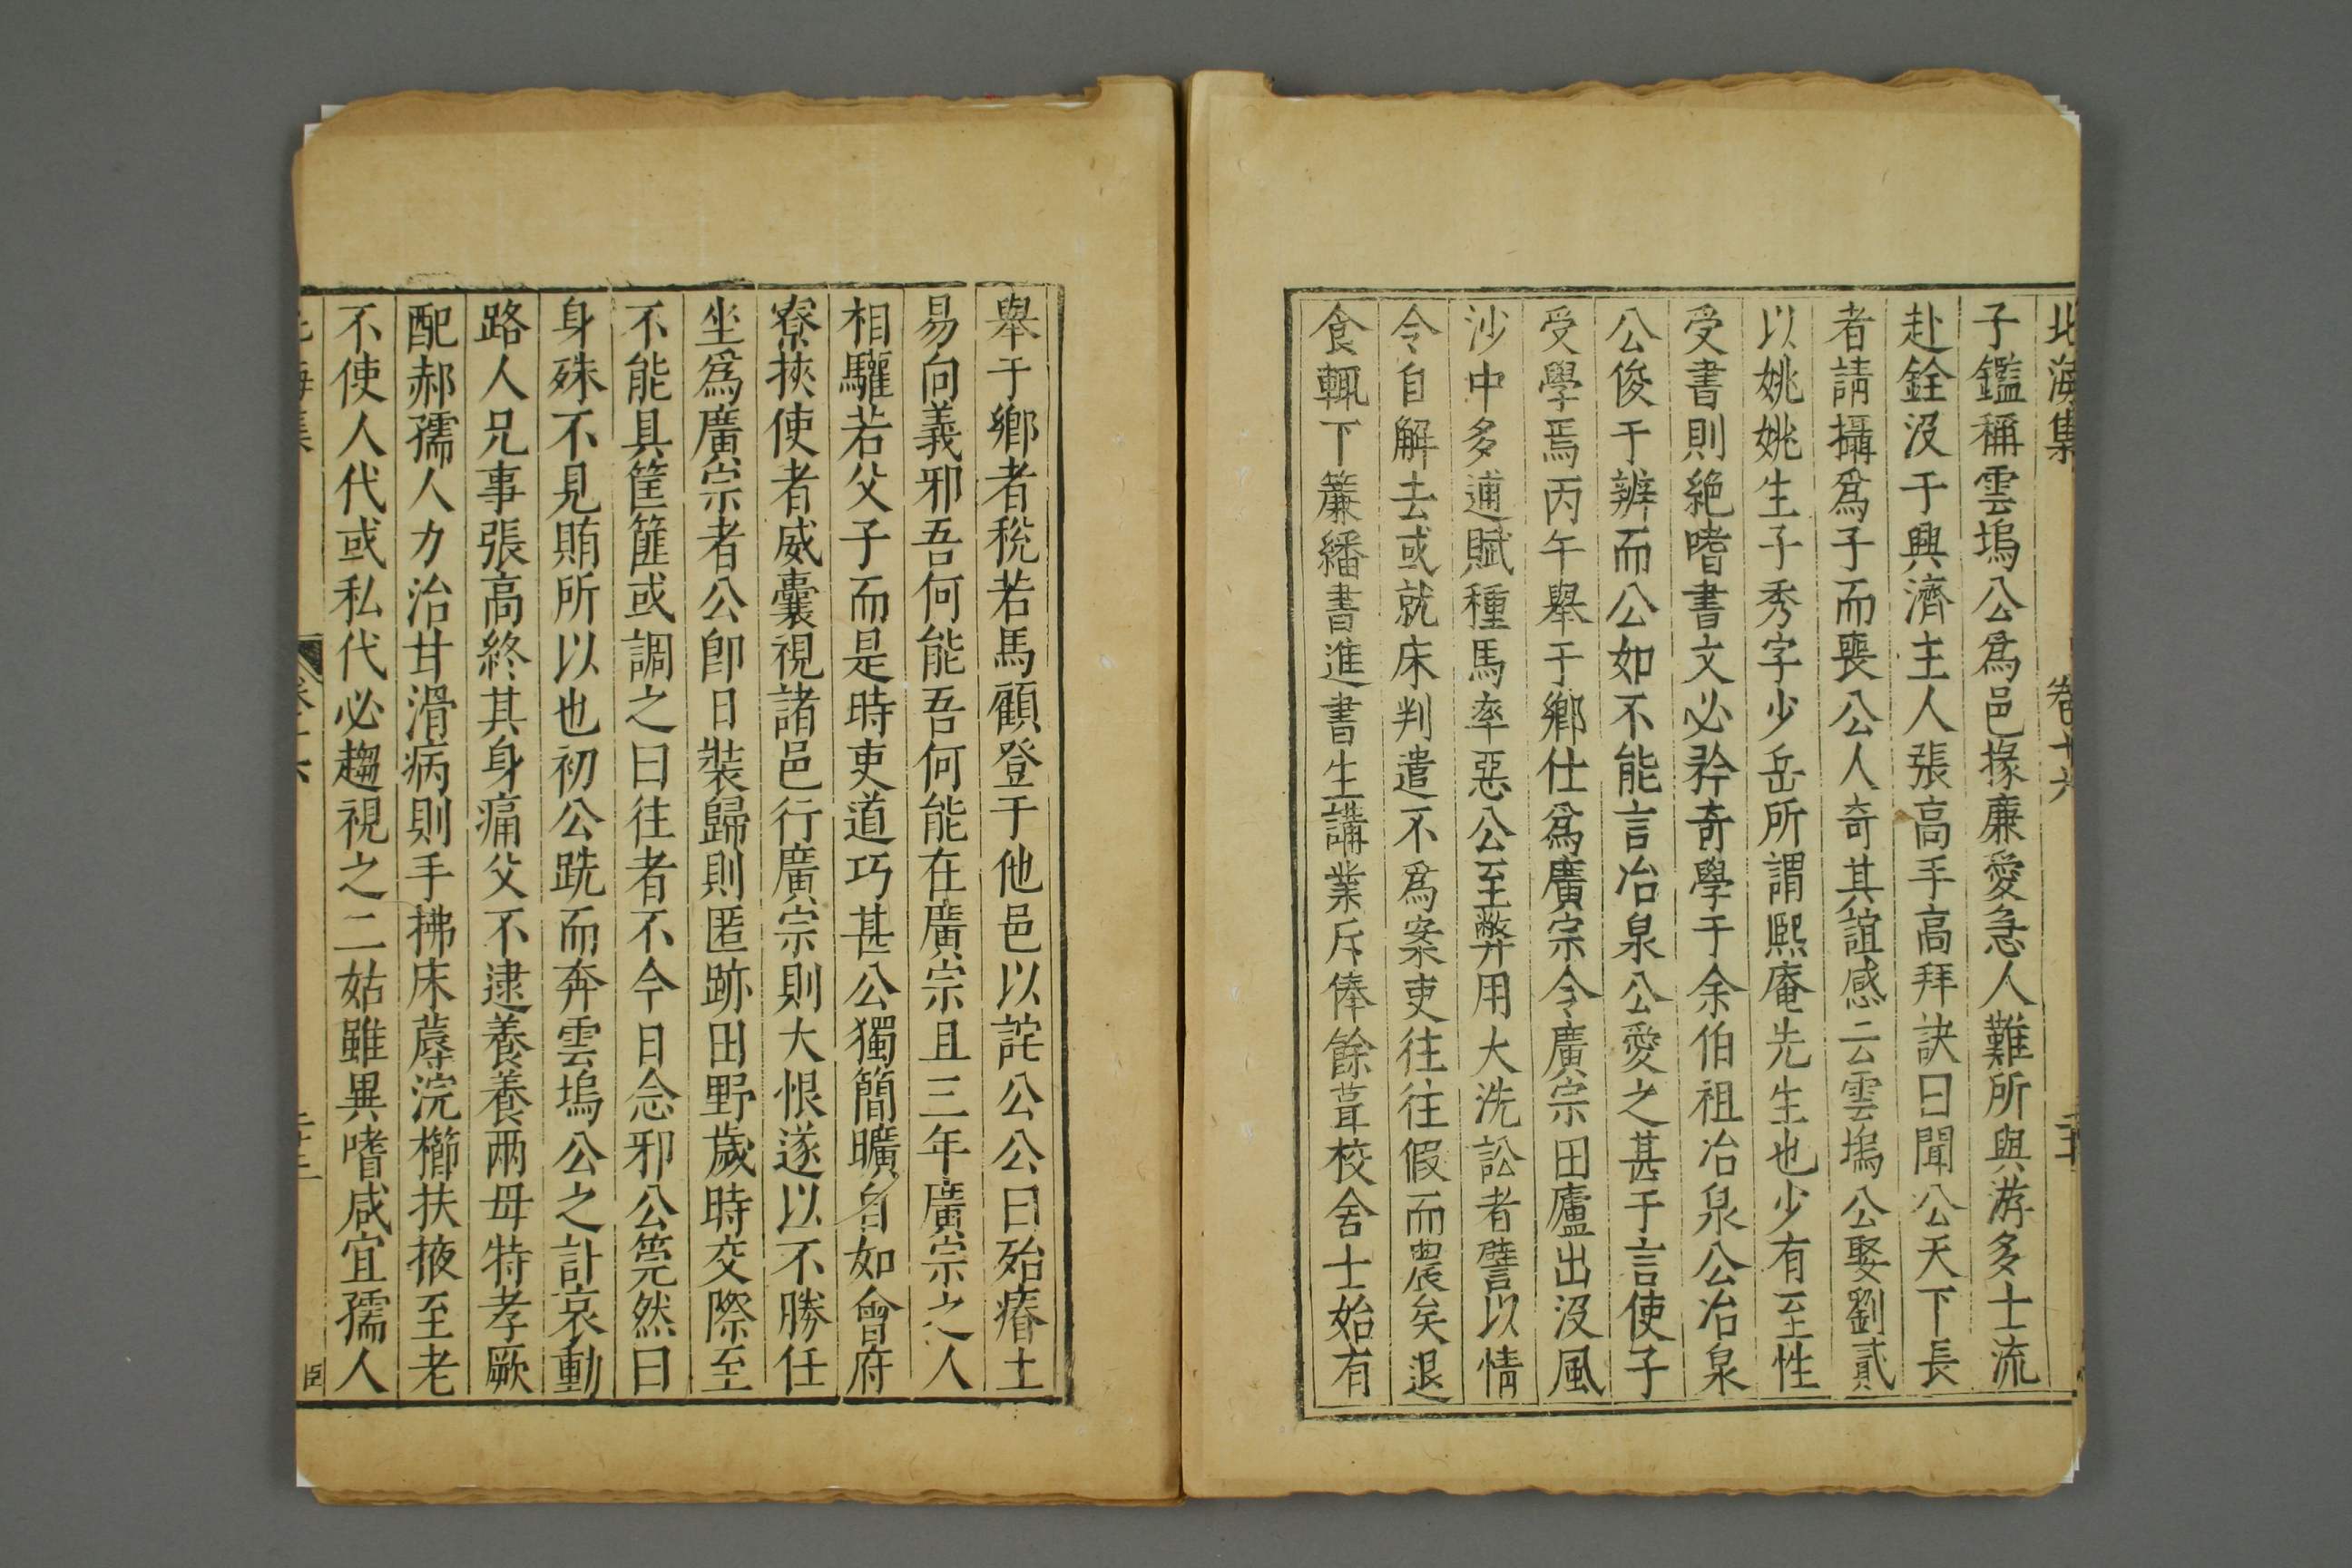 北海集 卷十六
子鑑稱雲塢公爲邑掾廉愛急人難所與游多士流
赴銓沒于興濟主人張高手高拜訣曰聞公天下長
者請攝爲子而喪公人奇其誼感云雲塢公娶劉貳
以姚姚生子秀字少岳所謂熙庵先生也少有至性
受書則絶嗜書文必矜奇學于余伯祖冶泉公冶泉
公俊于辨而公如不能言冶泉公愛之甚于言使子
受學焉丙午舉于鄉仕爲廣宗令廣宗田廬出沒風
沙中多逋賦種馬率惡公至弊用大洗訟者譬以情
令自解去或就床判遣不爲案吏往往假而農矣退
食輒下簾繙書進書生講業斥俸餘葺校舍士始有
舉于鄉者稅若馬顧登于他邑以詫公公曰殆瘠土
易向義邪吾何能吾何能在廣宗且三年廣宗之人
相驩若父子而是時吏道巧甚公獨簡曠自如會府
寮挾使者威囊視諸邑行廣宗則大恨遂以不勝任
坐爲廣宗者公卽日裝歸則匿跡田野歲時交際至
不能具筐篚或調之曰往者不今日念邪公筦然曰
身殊不見賄所以也初公跣而奔雲塢公之計哀動
路人兄事張高終其身痛父不逮養養兩毋特孝厥
配郝孺人力治甘滑病則手拂床蓐浣櫛扶掖至老
不使人代或私代必趨視之二姑雖異嗜咸宜孺人